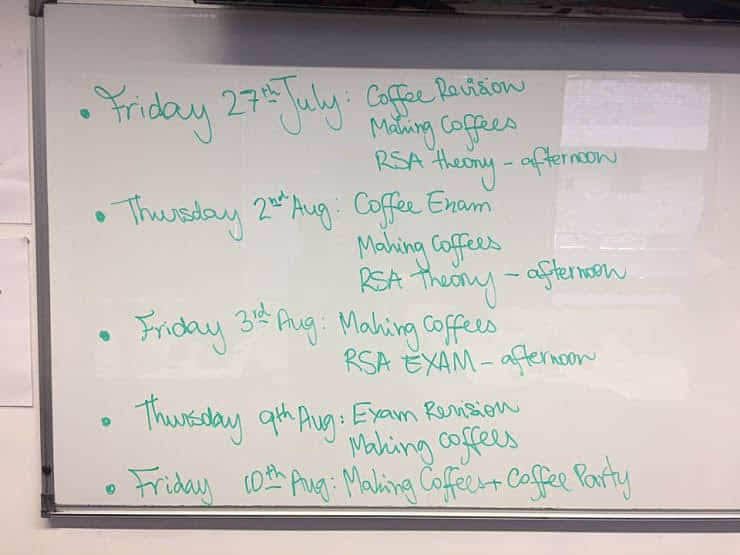 • Friday 27th July: Coffee Revision
Making Coffees
RSA theory - afternoon
• Thursday 2nd Aug: Coffee Exam
Making Coffees
RSA Theory - afternoon
• Friday 3rd Aug: Making Coffees
RSA EXAM - afternoon
• Thursday 9th Aug: Exam Revision
Making coffees
• Friday 10th Aug: Making Coffees + Coffee Party